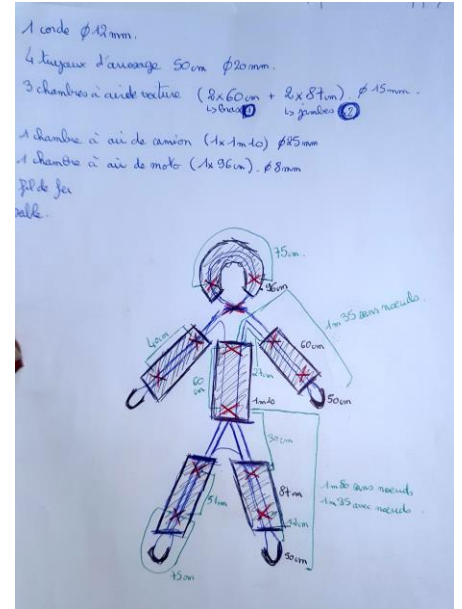 1 corde ϕ12mm.
4 tuyaux d'arrosage 50cm ϕ20mm.
3 chambres à air de voiture (2x60cm + 2x87cm) ϕ15mm.
↳ bras ① ↳ jambes ②
1 chambre à air de camion (1x1m10) ϕ25mm
1 chambre à air de moto (1x96cm). ϕ8mm
fil de fer
sable.
75cm
96cm
1m35 sans noeuds.
40cm
60cm
27cm
60cm
50cm
1m10
30cm
1m80 sans noeuds
1m35 avec noeuds
51cm
87cm
12cm
50cm
75cm